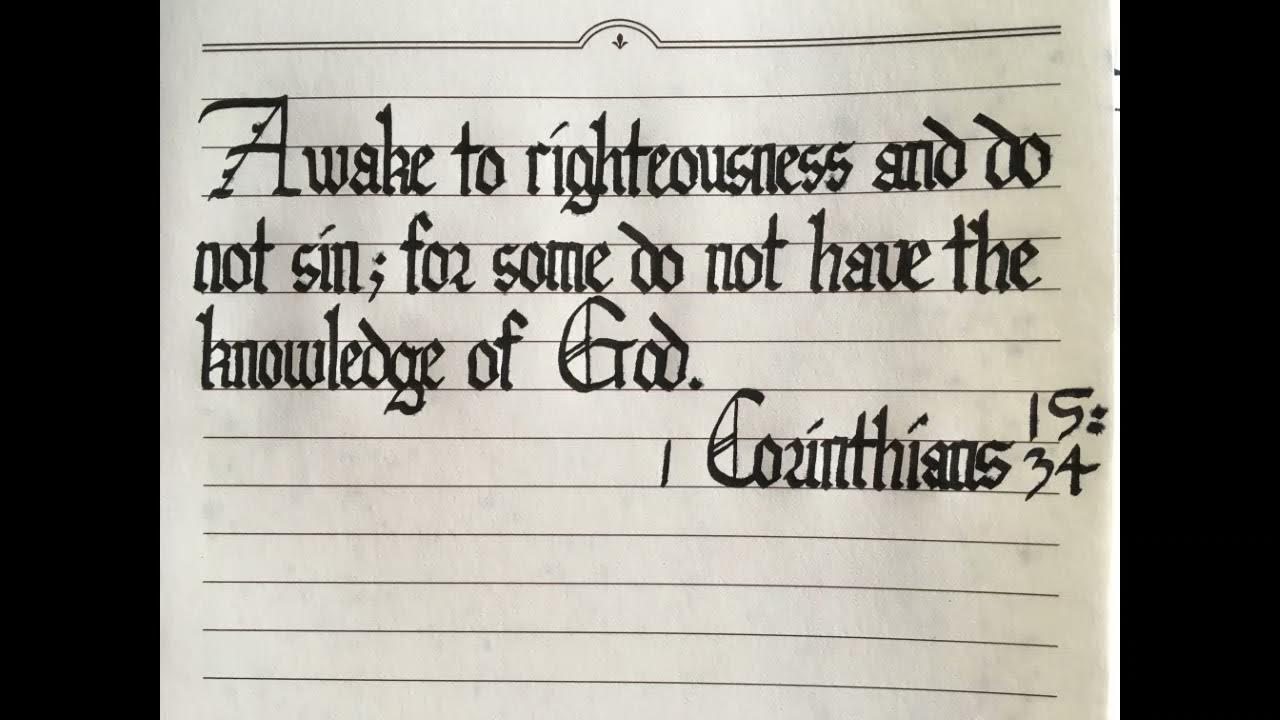 Awake to righteousness and do
not sin; for some do not have the
knowledge of God.
1 Corinthians 15:
34